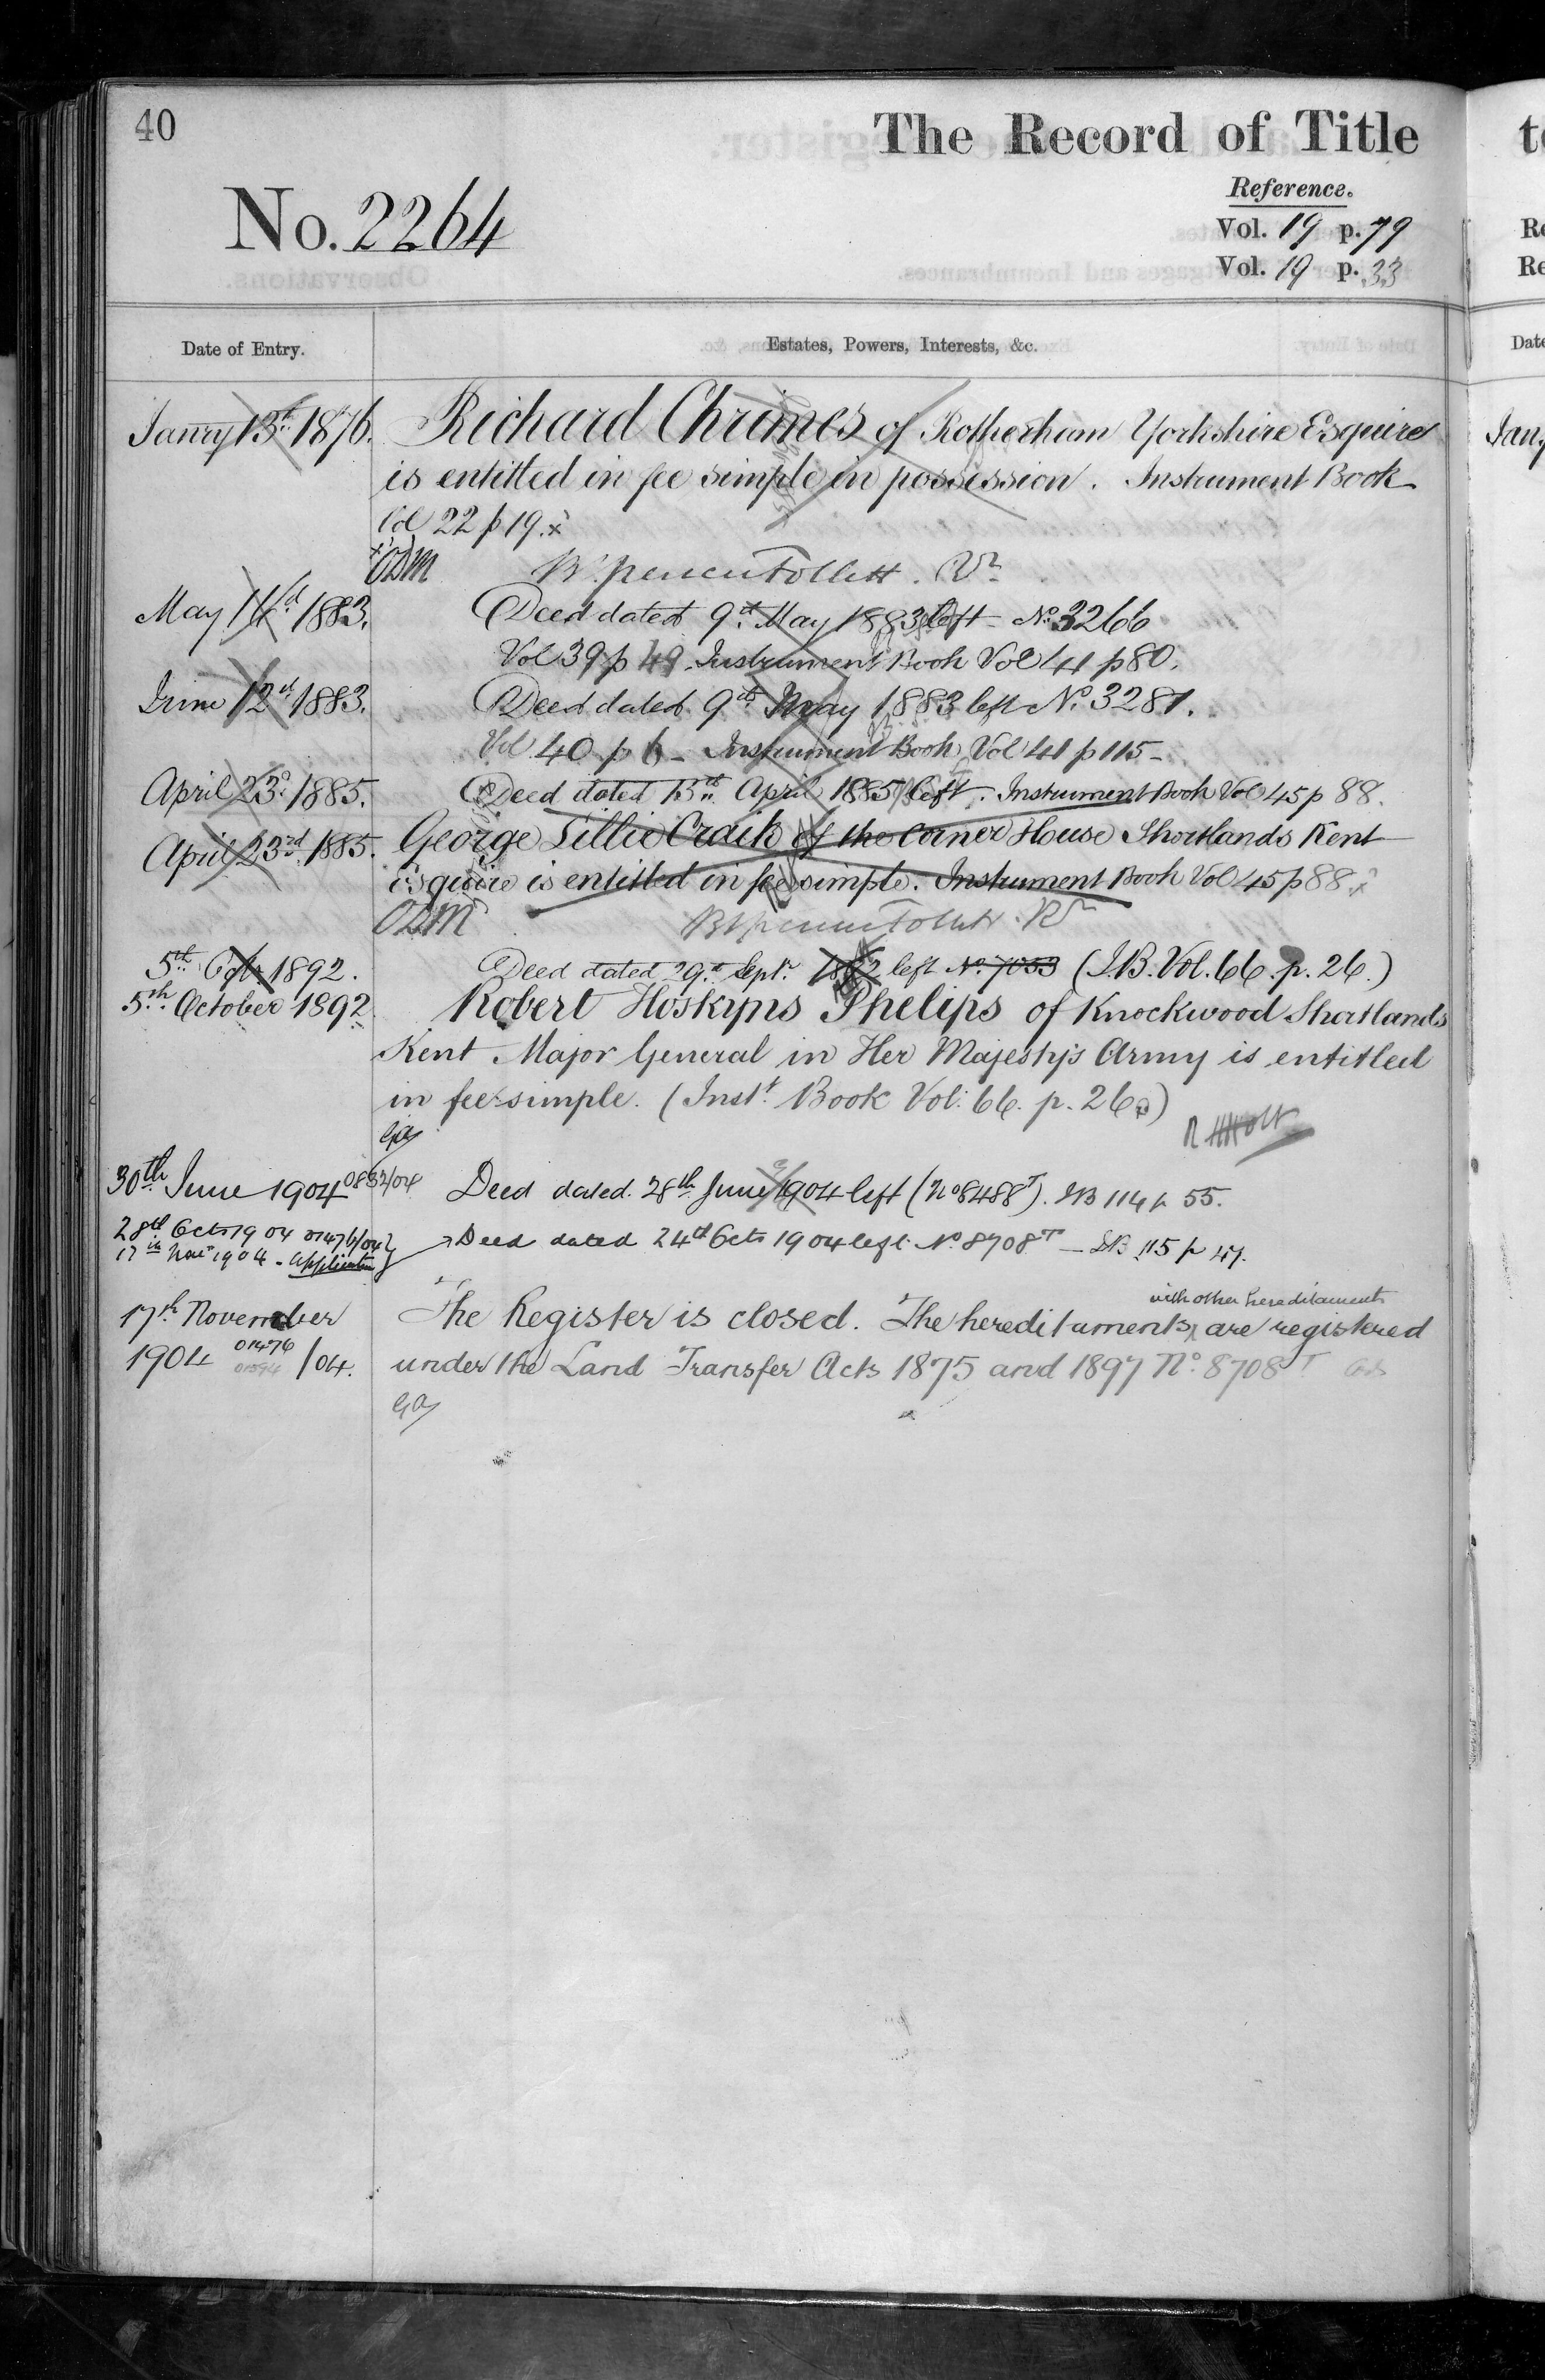 40
The Record of Title
Reference.
No. 2264
Vol. 19 p. 79
Vol. 19 p. 33
Date of Entry.
Estates, Powers, Interests, &c.
Janry 13th 1876. Richard Chrimes of Rotherham Yorkshire Esquire
is entitled in fee simple in possession. Instrument Book
Vol 22 p 19. x
ODM
Follett.
May 1883. Deed dated 9th May 1883 left No. 3266
Vol 39 p 49. Instrument Book Vol 41 p 80.
June 12th 1883. Deed dated 9th May 1883 left No. 3281.
Vol 40 p 6 - Instrument Book Vol 41 p 115 -
April 23d 1885. Deed dated 13th April 1885 left. Instrument Book Vol 45 p 88.
April 23rd 1885. George Lillie Craik of the Corner House Shortlands Kent
Esquire is entitled in fee simple. Instrument Book Vol 45 p 88. x
ODM
Follett
5th Octr 1892. Deed dated 29th Septr. left No. 7053 (I.B. Vol. 66. p. 26.)
5th October 1892 Robert Hoskyns Phelips of Knockwood Shortlands
Kent Major General in Her Majesty's Army is entitled
in fee simple. (Inst. Book Vol. 66. p. 26.)
30th June 1904 0832/04 Deed dated 28th June 1904 left (No 8488T). IB 114 p 55.
28th Octr 1904 01476/04 Deed dated 24th Octr 1904 left No. 8708T - IB 115 p 47.
17th Novr 1904 - Application
with other hereditaments
17th November The Register is closed. The hereditaments are registered
1904 01476 /04. under the Land Transfer Acts 1875 and 1897 No. 8708T
t
Re
Re
Date
Jan